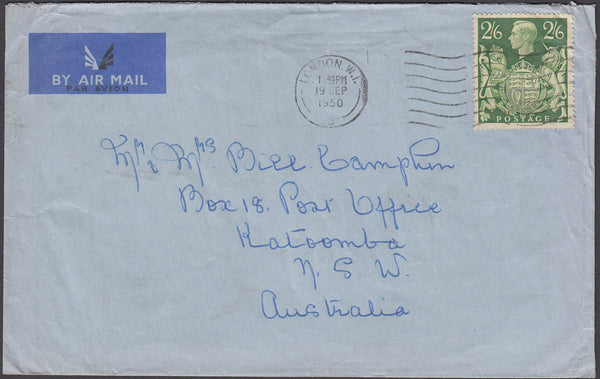 BY AIR MAIL
PAR AVION
LONDON. W.1.
1 45 PM
19 SEP
1950
2/6 2/6
POSTAGE
Mr & Mrs Bill Camphin
Box 18. Post Office
Katoomba
N. S. W.
Australia